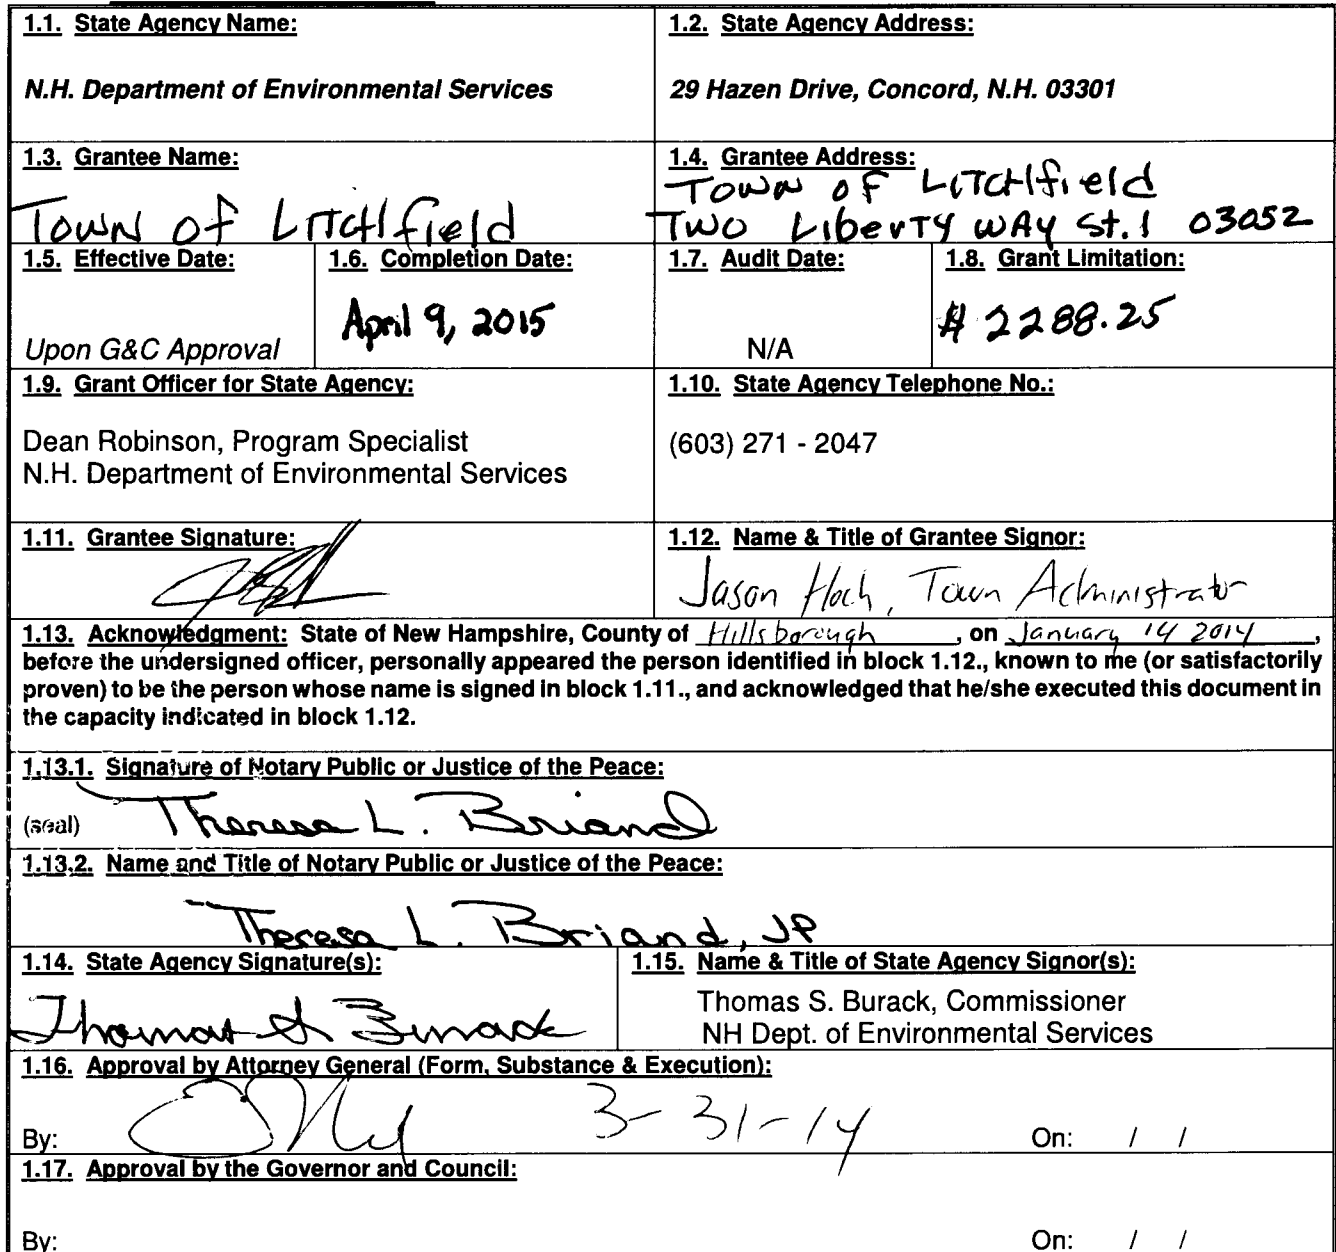 1.1. State Agency Name:
N.H. Department of Environmental Services
1.2. State Agency Address:
29 Hazen Drive, Concord, N.H. 03301
1.3. Grantee Name:
Town of Litchfield
1.4. Grantee Address:
Town of Litchfield
Two Liberty Way St. 1 03052
1.5. Effective Date:
Upon G&C Approval
1.6. Completion Date:
April 9, 2015
1.7. Audit Date:
N/A
1.8. Grant Limitation:
$ 2288.25
1.9. Grant Officer for State Agency:
Dean Robinson, Program Specialist
N.H. Department of Environmental Services
1.10. State Agency Telephone No.:
(603) 271 - 2047
1.11. Grantee Signature:
1.12. Name & Title of Grantee Signor:
Jason Hoch, Town Administrator
1.13. Acknowledgment: State of New Hampshire, County of Hillsborough, on January 14 2014,
before the undersigned officer, personally appeared the person identified in block 1.12., known to me (or satisfactorily
proven) to be the person whose name is signed in block 1.11., and acknowledged that he/she executed this document in
the capacity indicated in block 1.12.
1.13.1. Signature of Notary Public or Justice of the Peace:
(seal) Theresa L. Briand
1.13.2. Name and Title of Notary Public or Justice of the Peace:
Theresa L. Briand, JP
1.14. State Agency Signature(s):
Thomas S. Burack
1.15. Name & Title of State Agency Signor(s):
Thomas S. Burack, Commissioner
NH Dept. of Environmental Services
1.16. Approval by Attorney General (Form, Substance & Execution):
By: 3-31-14 On: / /
1.17. Approval by the Governor and Council:
By: On: / /